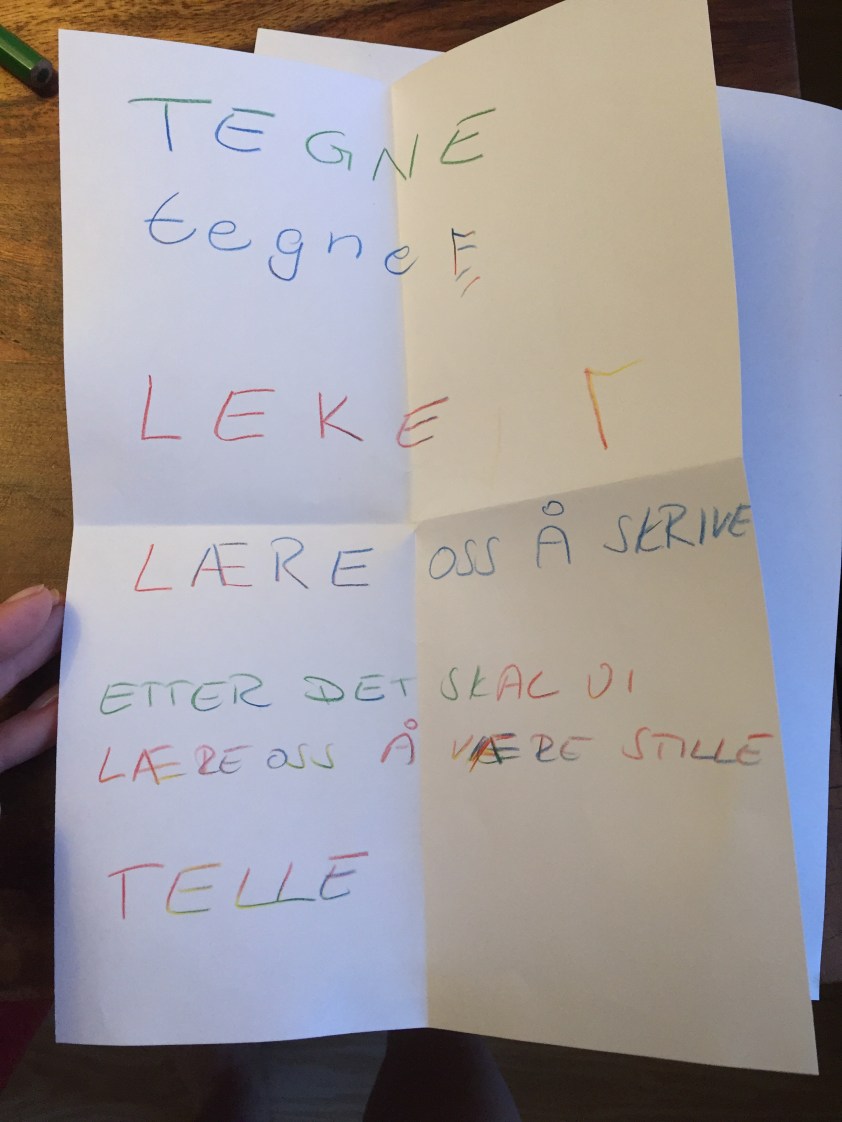 TEGNE
tegne F
LEKE
LÆRE OSS Å SKRIVE
ETTER DET SKAL VI
LÆRE OSS Å VÆRE STILLE
TELLE